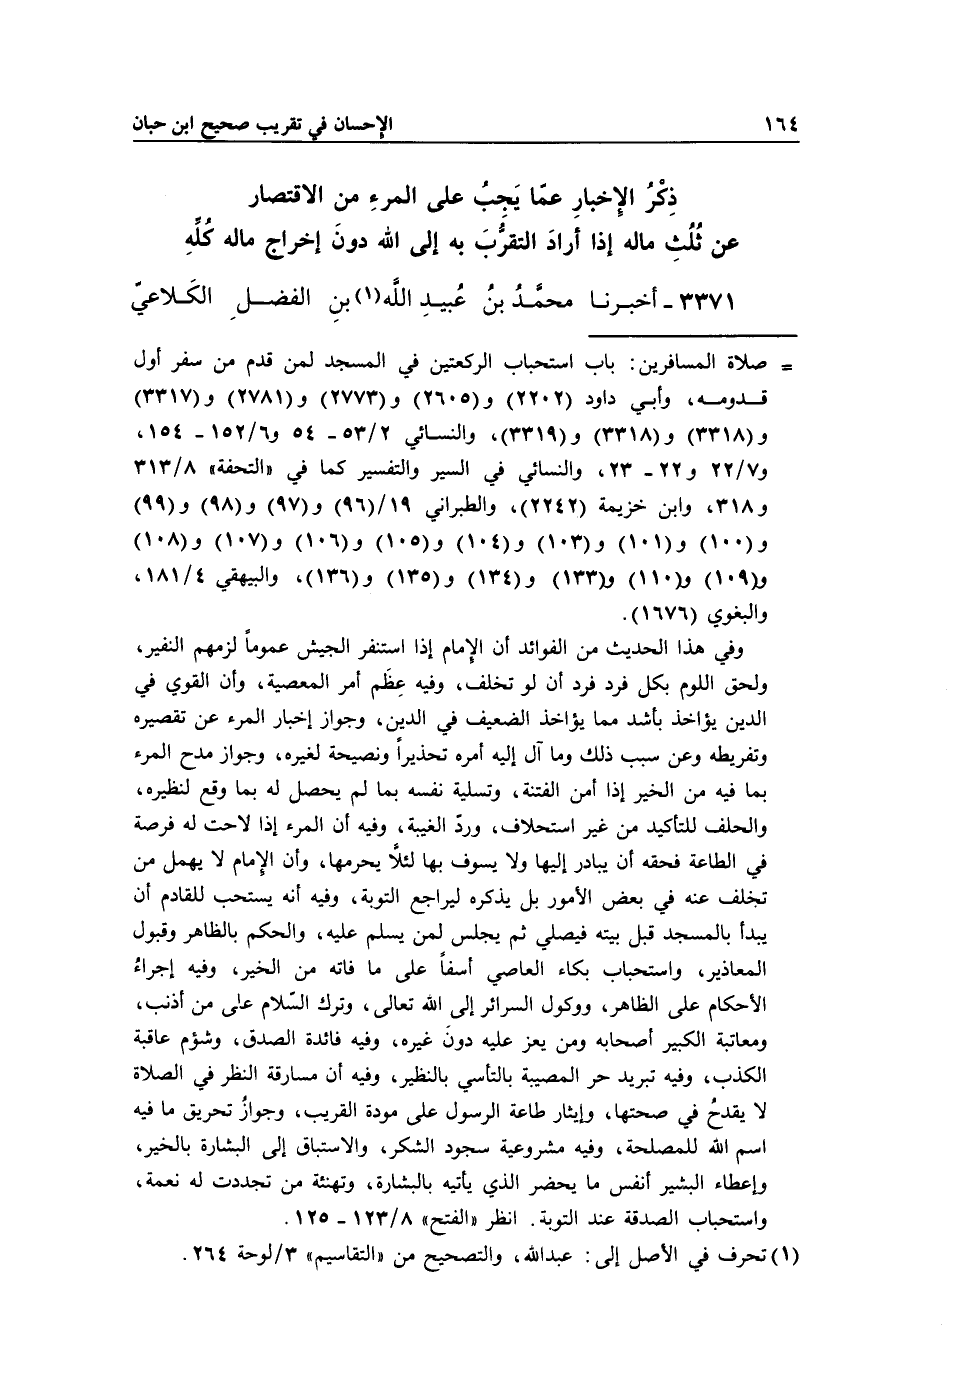 ١٦٤ الإحسان في تقريب صحيح ابن حبان
ذِكْرُ الإِخبارِ عمّا يَجِبُ على المرءِ من الاقتصار
عن ثُلُثِ ماله إذا أرادَ التقرُّبَ به إلى الله دونَ إخراج ماله كُلِّهِ
٣٣٧١ - أخبرنا محمَّدُ بنُ عُبيدِ اللَّه(١) بنِ الفضلِ الكَلاعيّ
= صلاة المسافرين: باب استحباب الركعتين في المسجد لمن قدم من سفر أول
قدومه، وأبي داود (٢٢٠٢) و(٢٦٠٥) و(٢٧٧٣) و(٢٧٨١) و(٣٣١٧)
و(٣٣١٨) و(٣٣١٨) و(٣٣١٩)، والنسائي ٥٣/٢ - ٥٤ و١٥٢/٦ - ١٥٤،
و٢٢/٧ و٢٢ - ٢٣، والنسائي في السير والتفسير كما في «التحفة» ٣١٣/٨
و٣١٨، وابن خزيمة (٢٢٤٢)، والطبراني ١٩/(٩٦) و(٩٧) و(٩٨) و(٩٩)
و(١٠٠) و(١٠١) و(١٠٣) و(١٠٤) و(١٠٥) و(١٠٦) و(١٠٧) و(١٠٨)
و(١٠٩) و(١١٠) و(١٣٣) و(١٣٤) و(١٣٥) و(١٣٦)، والبيهقي ١٨١/٤،
والبغوي (١٦٧٦).
وفي هذا الحديث من الفوائد أن الإمام إذا استنفر الجيش عموماً لزمهم النفير،
ولحق اللوم بكل فرد فرد أن لو تخلف، وفيه عِظَم أمر المعصية، وأن القوي في
الدين يؤاخذ بأشد مما يؤاخذ الضعيف في الدين، وجواز إخبار المرء عن تقصيره
وتفريطه وعن سبب ذلك وما آل إليه أمره تحذيراً ونصيحة لغيره، وجواز مدح المرء
بما فيه من الخير إذا أمن الفتنة، وتسلية نفسه بما لم يحصل له بما وقع لنظيره،
والحلف للتأكيد من غير استحلاف، وردّ الغيبة، وفيه أن المرء إذا لاحت له فرصة
في الطاعة فحقه أن يبادر إليها ولا يسوف بها لئلَّا يحرمها، وأن الإمام لا يهمل من
تخلف عنه في بعض الأمور بل يذكره ليراجع التوبة، وفيه أنه يستحب للقادم أن
يبدأ بالمسجد قبل بيته فيصلي ثم يجلس لمن يسلم عليه، والحكم بالظاهر وقبول
المعاذير، واستحباب بكاء العاصي أسفاً على ما فاته من الخير، وفيه إجراءُ
الأحكام على الظاهر، ووكول السرائر إلى الله تعالى، وترك السّلام على من أذنب،
ومعاتبة الكبير أصحابه ومن يعز عليه دونَ غيره، وفيه فائدة الصدق، وشؤم عاقبة
الكذب، وفيه تبريد حر المصيبة بالتأسي بالنظير، وفيه أن مسارقة النظر في الصلاة
لا يقدحُ في صحتها، وإيثار طاعة الرسول على مودة القريب، وجوازُ تحريق ما فيه
اسم الله للمصلحة، وفيه مشروعية سجود الشكر، والاستباق إلى البشارة بالخير،
وإعطاء البشير أنفس ما يحضر الذي يأتيه بالبشارة، وتهنئة من تجددت له نعمة،
واستحباب الصدقة عند التوبة. انظر «الفتح» ١٢٣/٨ - ١٢٥.
(١) تحرف في الأصل إلى: عبدالله، والتصحيح من «التقاسيم» ٣/لوحة ٢٦٤.